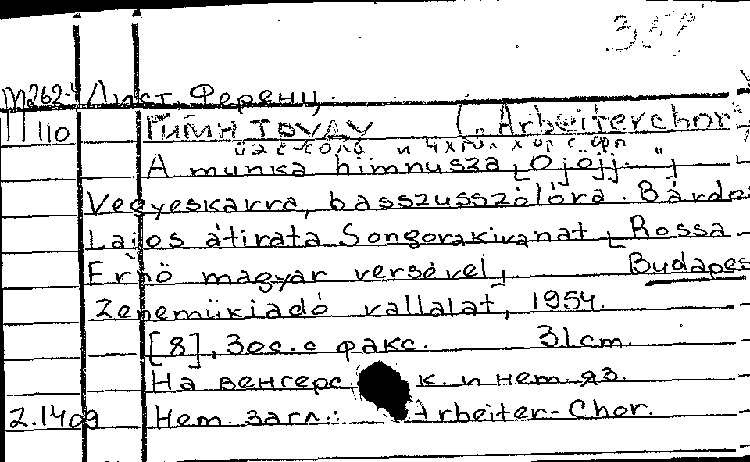 357
M262-4 Лист, Ференц.
1110 Гимн труду („Arbeiterchor"
A munka himnusza [„Ó jöjj..."]
Vegyeskarra, basszusszólóra. Bárdos
Lajos átirata Songorakivanat [Rossa
Ernő magyar versével]
Budapes
Zeneműkiadó vallalat, 1954.
[8], 30с. с факс. 31cm.
На венгерс к. и нем. яз.
2.1409 Нем. загл.: Arbeiter-Chor.